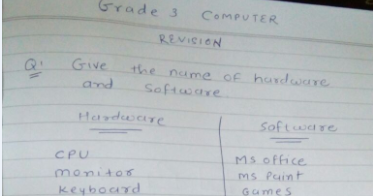 Grade 3 COMPUTER
REVISION
Q: Give the name of hardware
and Software.
Hardware Software
CPU MS office
monitor MS Paint
Keyboard Games